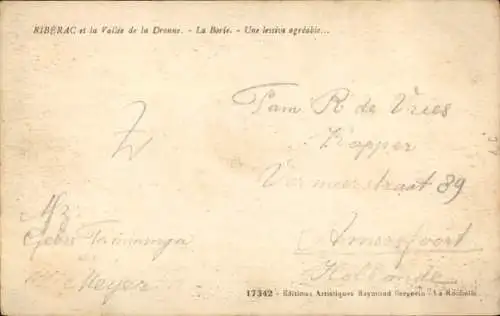 RIBÉRAC et la Vallée de la Dronne. - La Borie. - Une lessive agréable...
Fam R de Vries
Kapper
Vermeerstraat 89
Amersfoort
Hollande
Afz
Gebr Taminanga
Meyer
17342 - Editions Artistiques Raymond Bergevin - La Rochelle